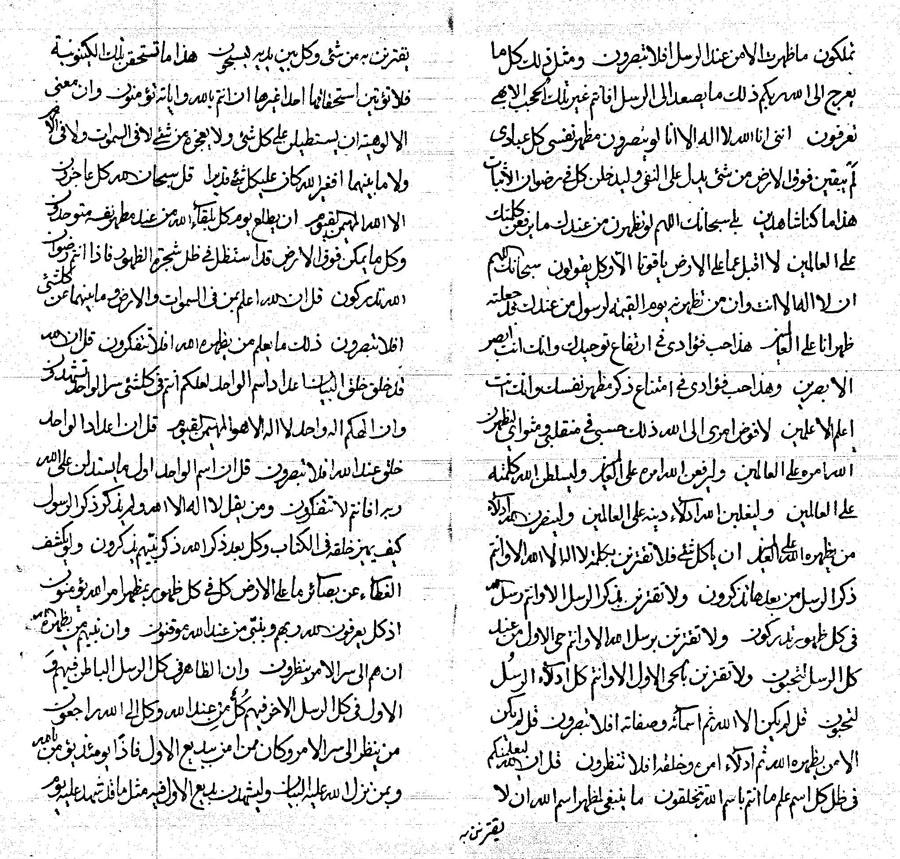 تملكون ما ظهرت الا من عند الرسل افلا تبصرون ومثل ذلك كل ما
يعرج الى الله ربكم ذلك ما يصعد الى الرسل افانتم غير تلك الحجب الابهى
تعرفون اننى انا الله لا اله الا انا لو تبصرون مظهر نفسى كل عبادى
لم يبقين فوق الارض من شئ يدل على النفى وليدخلن كل فى رضوان الاثبات
هذا ما كنا شاهدين بلى سبحانك اللهم لو تظهرن من عندك ما يرفعن كلمتك
على العالمين لاقبل عما على الارض ياقوتا الا وكل يقولون سبحانك اللهم
ان لا اله الا انت وان من تظهرنه يوم القيمة لرسول من عندك قد جعلته
ظهرانا على العالمين هذا حب فؤادى فى ارتفاع توحيدك وانك انت ابصر
الابصرين وهذا حب فؤادى فى امتناع ذكر مظهر نفسك وانك انت
اعلم الاعلمين لافوض امرى الى الله ذلك حسبى فى منقلبى ومثواى ليظهرن
الله امره على العالمين وليرفعن الله امره على العالمين وليسلطن الله كلمته
على العالمين وليغلبن الله ادلاء دينه على العالمين ولينصرن الله ادلاء
من يظهره الله على العالمين ان يا كل شئ فلا تقترنن بكلمة لا اله الا الله الا وانتم
ذكر الرسل من بعدها تذكرون ولا تقترنن بذكر الرسل الا وانتم رسل الله
فى كل ظهور تدركون ولا تقترنن برسل الله الا وانتم حى الاول من عند
كل الرسل لتحبون ولا تقترنن بالحى الاول الا وانتم كل ادلاء الرسل
لتحبون قل لم يكن الا الله ثم اسمائه وصفاته افلا تبصرون قل لم يكن
الا من يظهره الله ثم ادلاء امره وخلقه افلا تنظرون قل ان الله ليعلمنكم
فى ظل كل اسم علم ما انتم باسم الله تخلقون ما ينبغى لمظهر اسم الله ان لا
يقترنن به
يقترنن به من شئ وكل بين يديه ليسجدون هذا ما تستحقن تلك الكينونية
فلا تؤتين استحقاقها احدا غيرها ان انتم بالله واياته تؤمنون وان معنى
الالوهية ان يستطيلن على كل شئ ولا يعجزه من شئ لا فى السموات ولا فى الارض
ولا ما بينهما افغير الله كان على كل شئ قديرا قل سبحان الله كل عاجزون
الا الله المهيمن القيوم ان يطلع يوم كل بلقاء الله من عند مظهر نفسه متوحدون
وكل ما يمكن فوق الارض قد استظل فى ظل شجرة الظهور فاذا انتم رضوان
الله تدركون قل ان الله اعلم بمن فى السموات والارض وما بينهما عن كلشئ
افلا تبصرون ذلك ما يعلم من يظهره الله افلا تتفكرون قل ان الله
قد خلق خلق البيان عداد اسم الواحد لعلكم انتم فى كلشئ سر الواحد تشهدون
وان الهكم اله واحد لا اله الا هو المهيمن القيوم قل ان عداد الواحد
خلق عند الله افلا تبصرون قل ان اسم الواحد اول ما يستدلن على الله
ربه افانتم لا تتفكرون ومن يقل لا اله الا الله ولم يذكر ذكر الرسول
كيف يميز خلقه فى الكتاب وكل بعد ذكر الله ذكر نبيهم يذكرون ولو يكشف
الغطاء عن بصائر ما على الارض كل فى كل ظهور بمظهر امر الله يؤمنون
اذ كل يعرفون الله ربهم وبنبى من عند الله يوقنون وان نبيهم من يظهره الله
ان هم الى سر الامر ينظرون وان الظاهر فى كل الرسل الباطن فيهم و
الاول فى كل الرسل الاخر فيهم كل من عند الله وكل الى الله راجعون
من ينظر الى سر الامر وكان من امن ببديع الاول فاذا يومئذ يؤمن بالله
وبمن نزل الله عليه البيان وليشهدن بديع الاول فيه مثل ما قد شهد عليه يوم